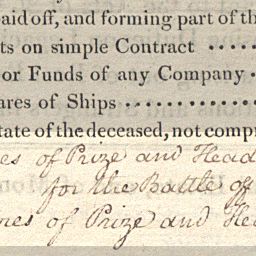 aid off, and forming part of th
ts on simple Contract ......
or Funds of any Company .
ares of Ships ..............
tate of the deceased, not comp
es of Prize and Head
for the Battle off
nes of Prize and He